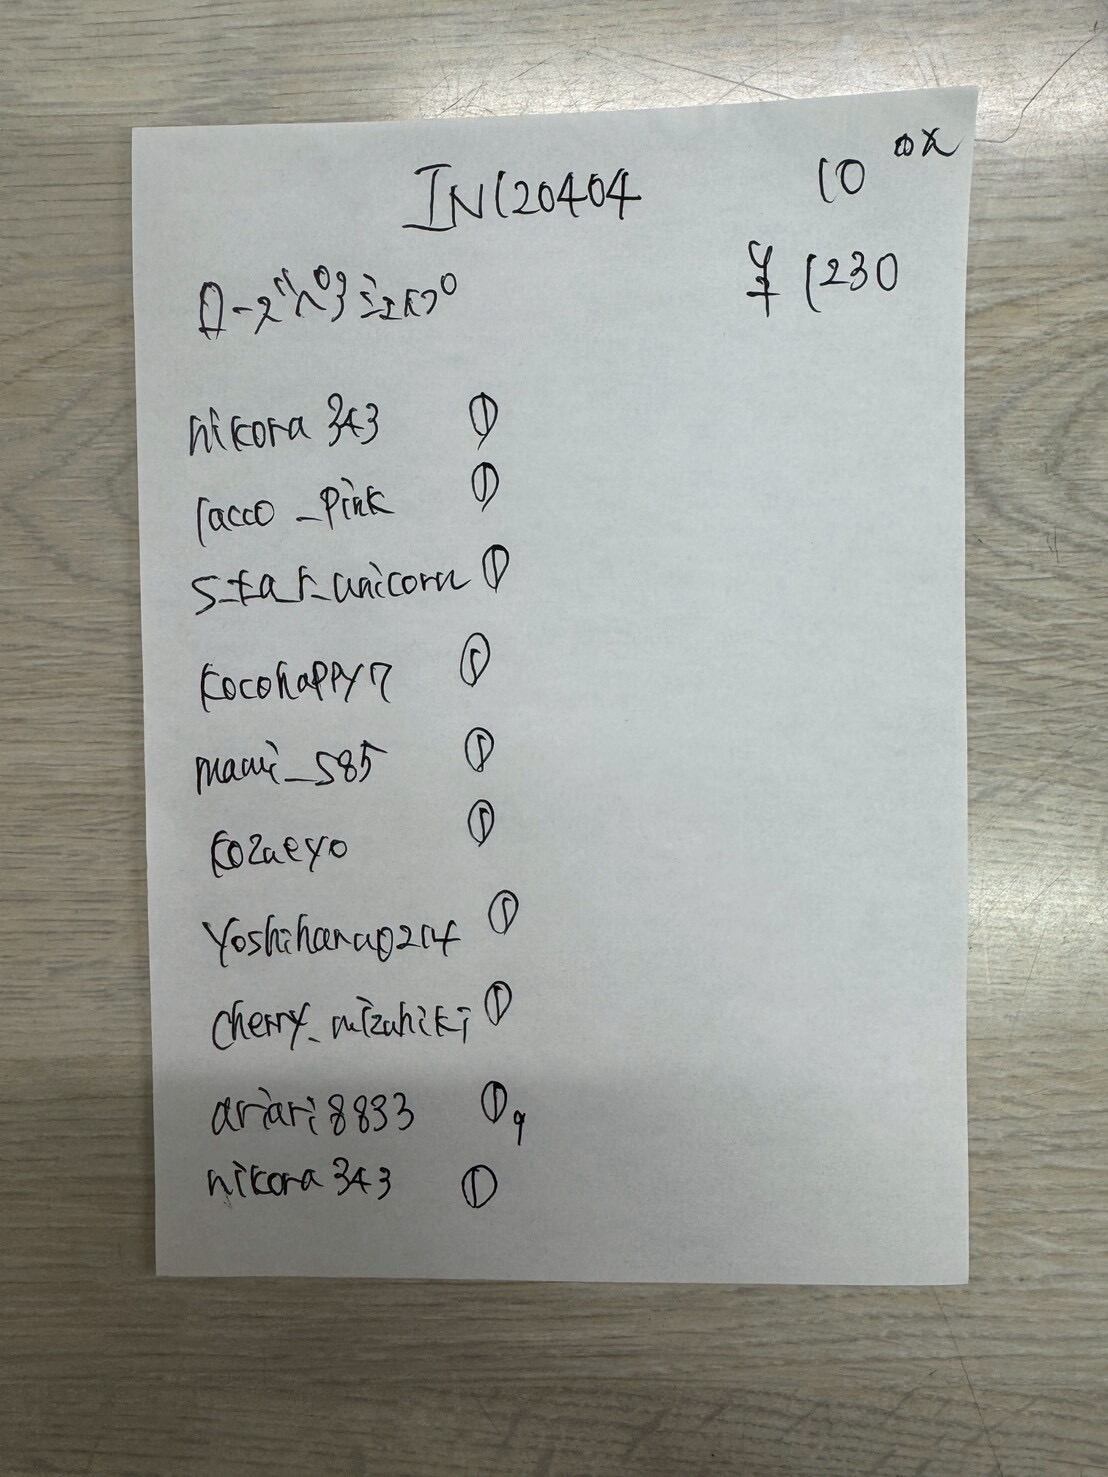 IN120404
10 ax
¥1230
nikora343 ①
racco_pink ①
star_unicorn ①
kocohappy7 ①
mami_s85 ①
kozaeyo ①
yoshihana0214 ①
cherry_mizuhiki ①
ariari8833 ① 9
nikora343 ①